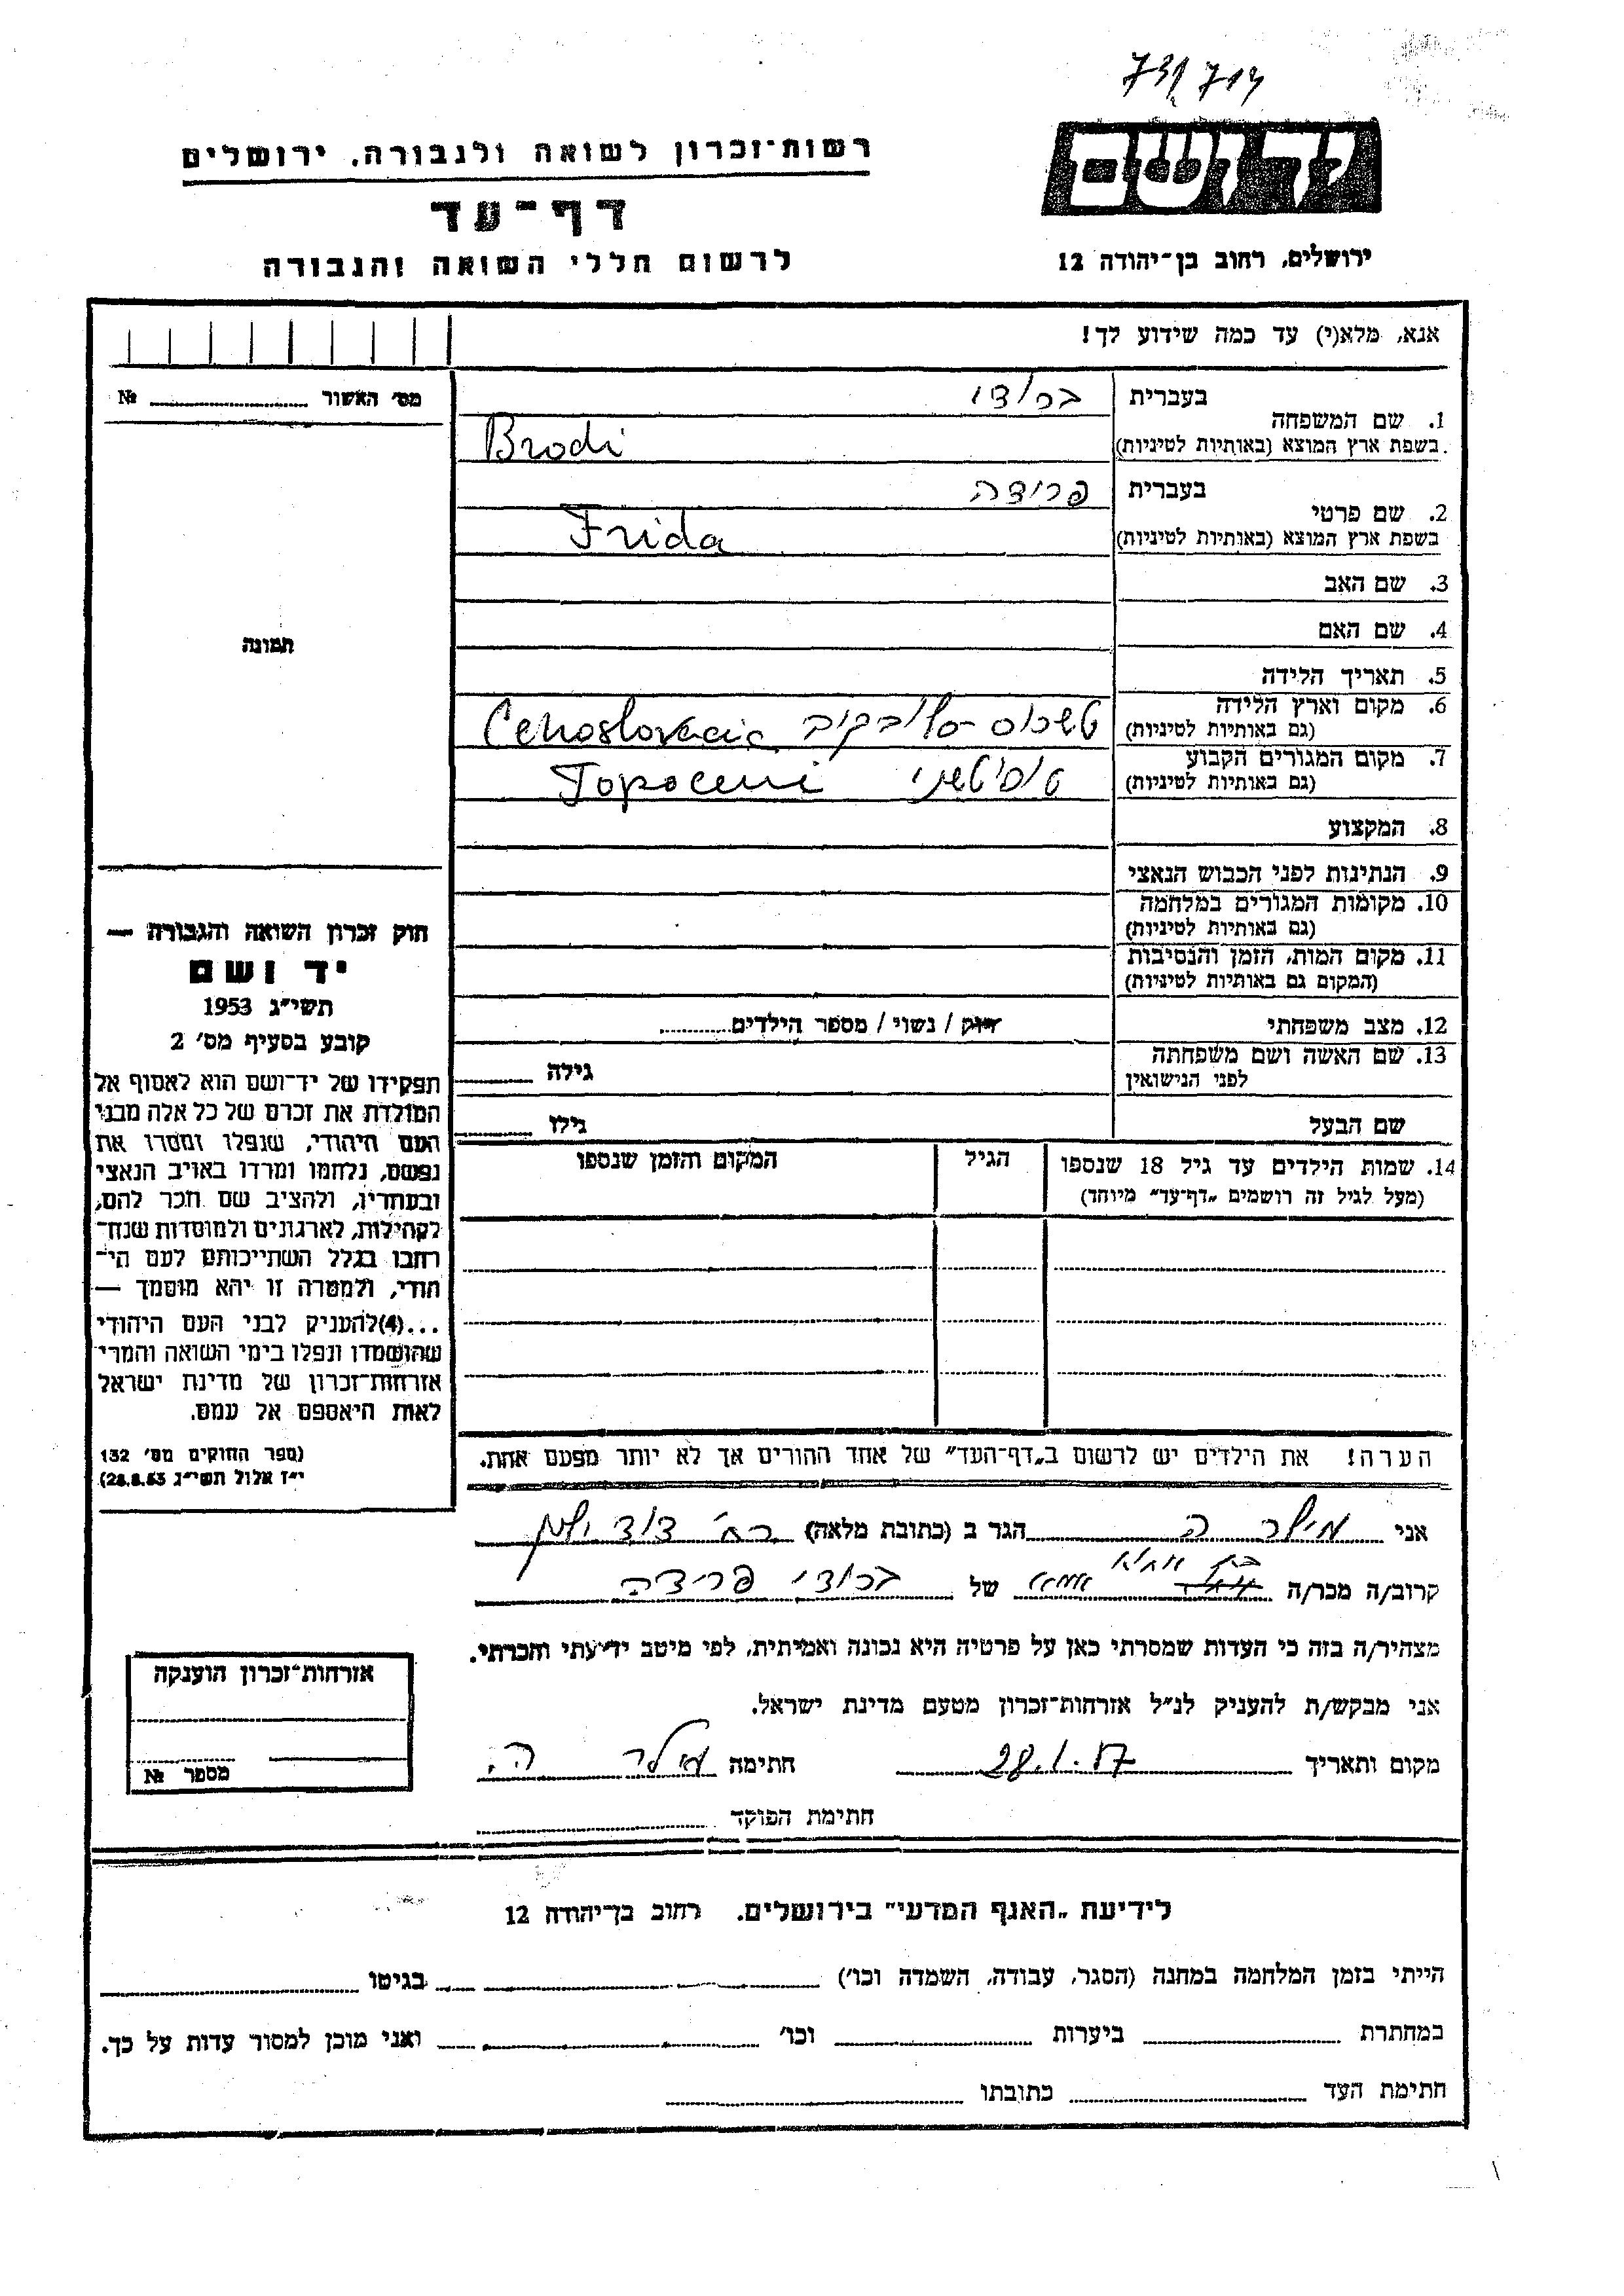 יד ושם
רשות-זכרון לשואה ולגבורה, ירושלים
דף-עד
לרשום חללי השואה והגבורה
ירושלים, רחוב בן-יהודה 12
אנא, מלא(י) עד כמה שידוע לך!
מס׳ האשור № 
1. שם המשפחה
בעברית ברודי
בשפת ארץ המוצא (באותיות לטיניות) Brodi
2. שם פרטי
בעברית פרידה
בשפת ארץ המוצא (באותיות לטיניות) Frida
3. שם האב
4. שם האם
תמונה
5. תאריך הלידה
6. מקום וארץ הלידה
(גם באותיות לטיניות)
7. מקום המגורים הקבוע
(גם באותיות לטיניות)
8. המקצוע
9. הנתינות לפני הכבוש הנאצי
10. מקומות המגורים במלחמה
(גם באותיות לטיניות)
11. מקום המות, הזמן והנסיבות
(המקום גם באותיות לטיניות)
12. מצב משפחתי רווק / נשוי / מספר הילדים
13. שם האשה ושם משפחתה
לפני הנישואין גילה
שם הבעל גילו
14. שמות הילדים עד גיל 18 שנספו
(מעל לגיל זה רושמים „דף-עד״ מיוחד)
הגיל
המקום והזמן שנספו
חוק זכרון השואה והגבורה —
יד ושם
תשי״ג 1953
קובע בסעיף מס׳ 2
תפקידו של יד-ושם הוא לאסוף אל
המולדת את זכרם של כל אלה מבני
העם היהודי, שנפלו ומסרו את
נפשם, נלחמו ומרדו באויב הנאצי
ובעוזריו, ולהציב שם וזכר להם,
לקהילות, לארגונים ולמוסדות שנח-
רבו בגלל השתייכותם לעם הי-
הודי, ולמטרה זו יהא מוסמך —
...(4)להעניק לבני העם היהודי
שהושמדו ונפלו בימי השואה והמרי
אזרחות-זכרון של מדינת ישראל
לאות היאספם אל עמם.
(ספר החוקים מס׳ 132
י״ז אלול תשי״ג 28.8.53)
הערה! את הילדים יש לרשום ב„דף-העד״ של אחד ההורים אך לא יותר מפעם אחת.
אני מילר ה הגר ב (כתובת מלאה)
קרוב/ה מכר/ה של ברודי פרידה
מצהיר/ה בזה כי העדות שמסרתי כאן על פרטיה היא נכונה ואמיתית, לפי מיטב ידיעתי והכרתי.
אני מבקש/ת להעניק לנ״ל אזרחות-זכרון מטעם מדינת ישראל.
מקום ותאריך 28.1.57 חתימה מילר ה.
חתימת הפוקד
אזרחות-זכרון הוענקה
מספר №
לידיעת „האגף המדעי״ בירושלים. רחוב בן-יהודה 12
הייתי בזמן המלחמה במחנה (הסגר, עבודה, השמדה וכו׳) בגיטו
במחתרת ביערות וכו׳ ואני מוכן למסור עדות על כך.
חתימת העד כתובתו